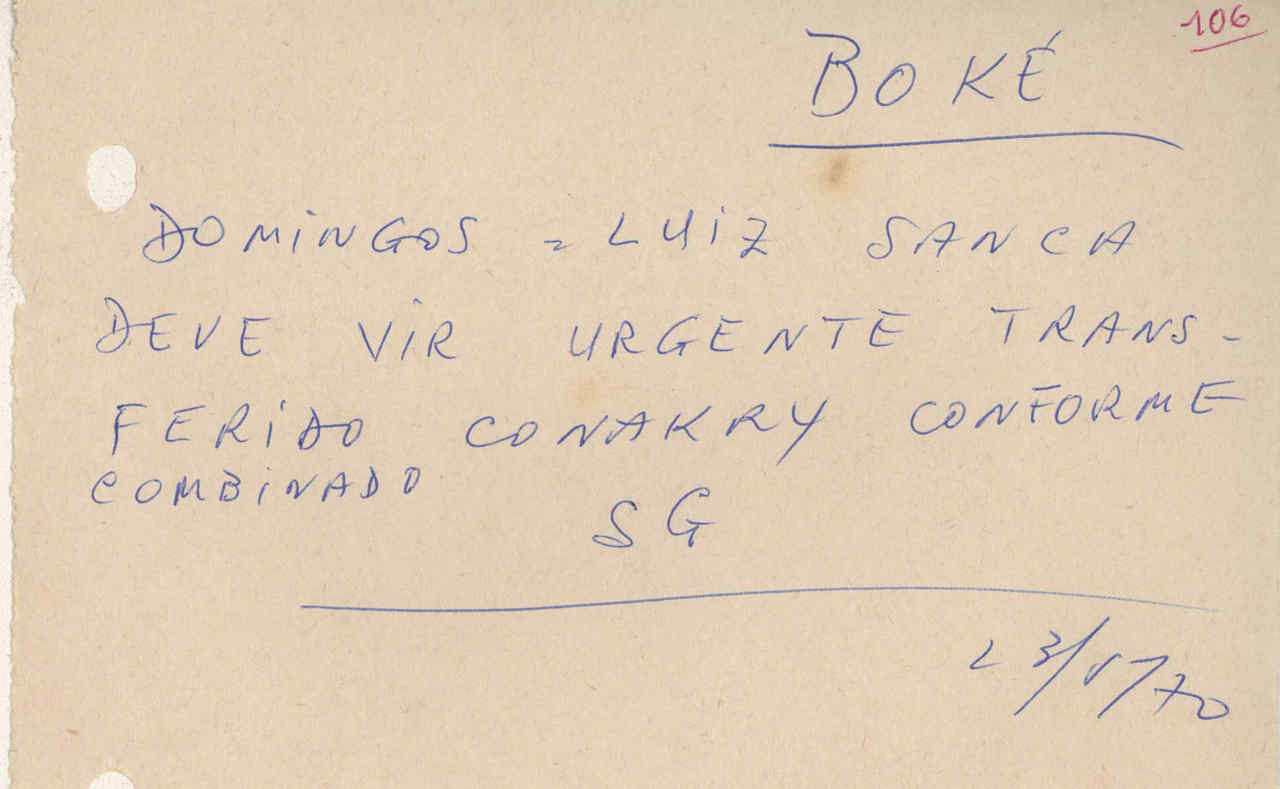 106
BOKÉ
DOMINGOS = LUIZ SANCA
DEVE VIR URGENTE TRANS-
FERIDO CONAKRY CONFORME
COMBINADO
SG
23/5/70